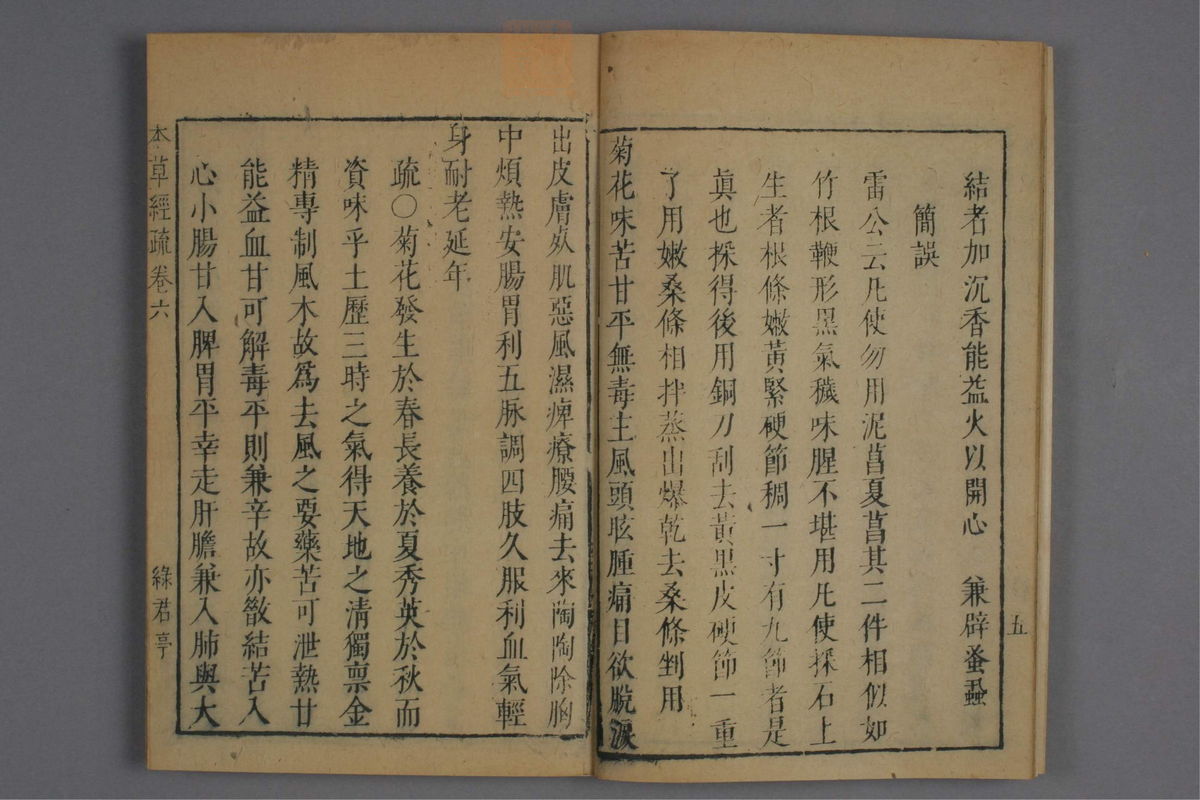 結者加沉香能益火以開心 兼辟蚤蝨
簡誤
雷公云凡使勿用泥菖夏菖其二件相似如
竹根鞭形黑氣穢味腥不堪用凡使採石上
生者根條嫩黃緊硬節稠一寸有九節者是
眞也採得後用銅刀刮去黃黑皮硬節一重
了用嫩桑條相拌蒸出爆乾去桑條剉用
菊花味苦甘平無毒主風頭眩腫痛目欲脫淚
五
出皮膚死肌惡風濕痺療腰痛去來陶陶除胸
中煩熱安腸胃利五脉調四肢久服利血氣輕
身耐老延年
疏○菊花發生於春長養於夏秀英於秋而
資味乎土歷三時之氣得天地之清獨稟金
精專制風木故爲去風之要藥苦可泄熱甘
能益血甘可解毒平則兼辛故亦散結苦入
心小腸甘入脾胃平幸走肝膽兼入肺與大
本草經疏卷六 綠君亭